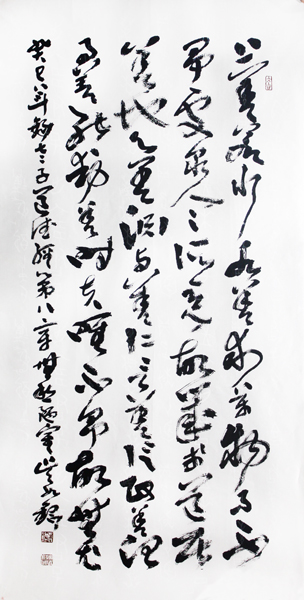 上善若水水善利万物而不
争处众人之所恶故幾於道居
善地心善渊与善仁言善信政善治
事善能动善时夫唯不争故無尤
癸巳年錄老子道德經第八章